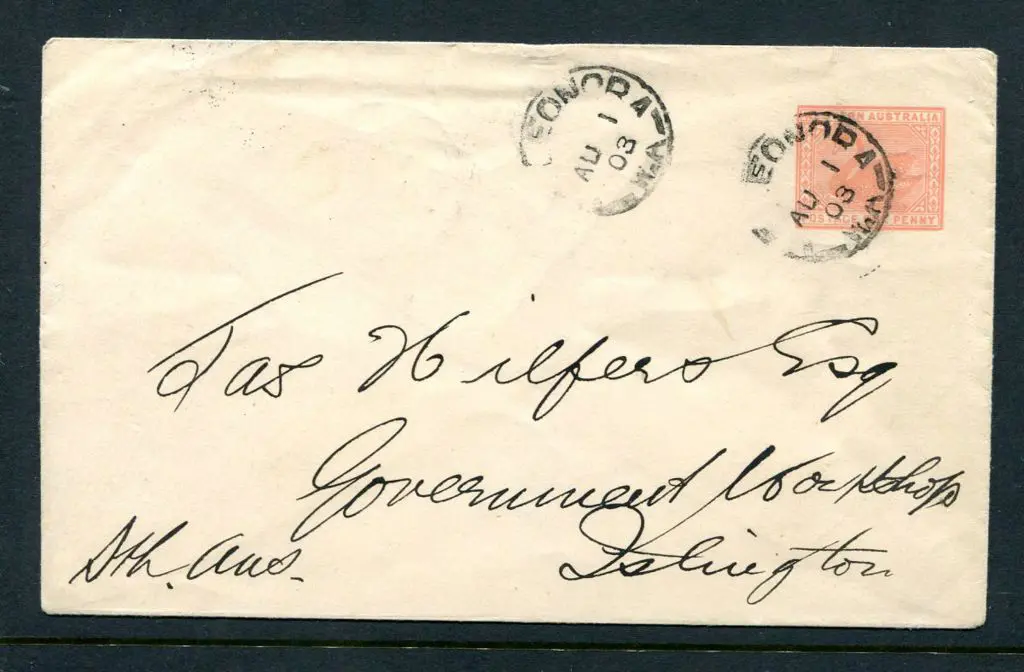 EONORA W.A
AU 1
03
EONORA W.A
AU 1
03
N AUSTRALIA
POSTAGE PENNY
Jas Hilfers Esq
Government Workshops
Islington
Sth. Aus.